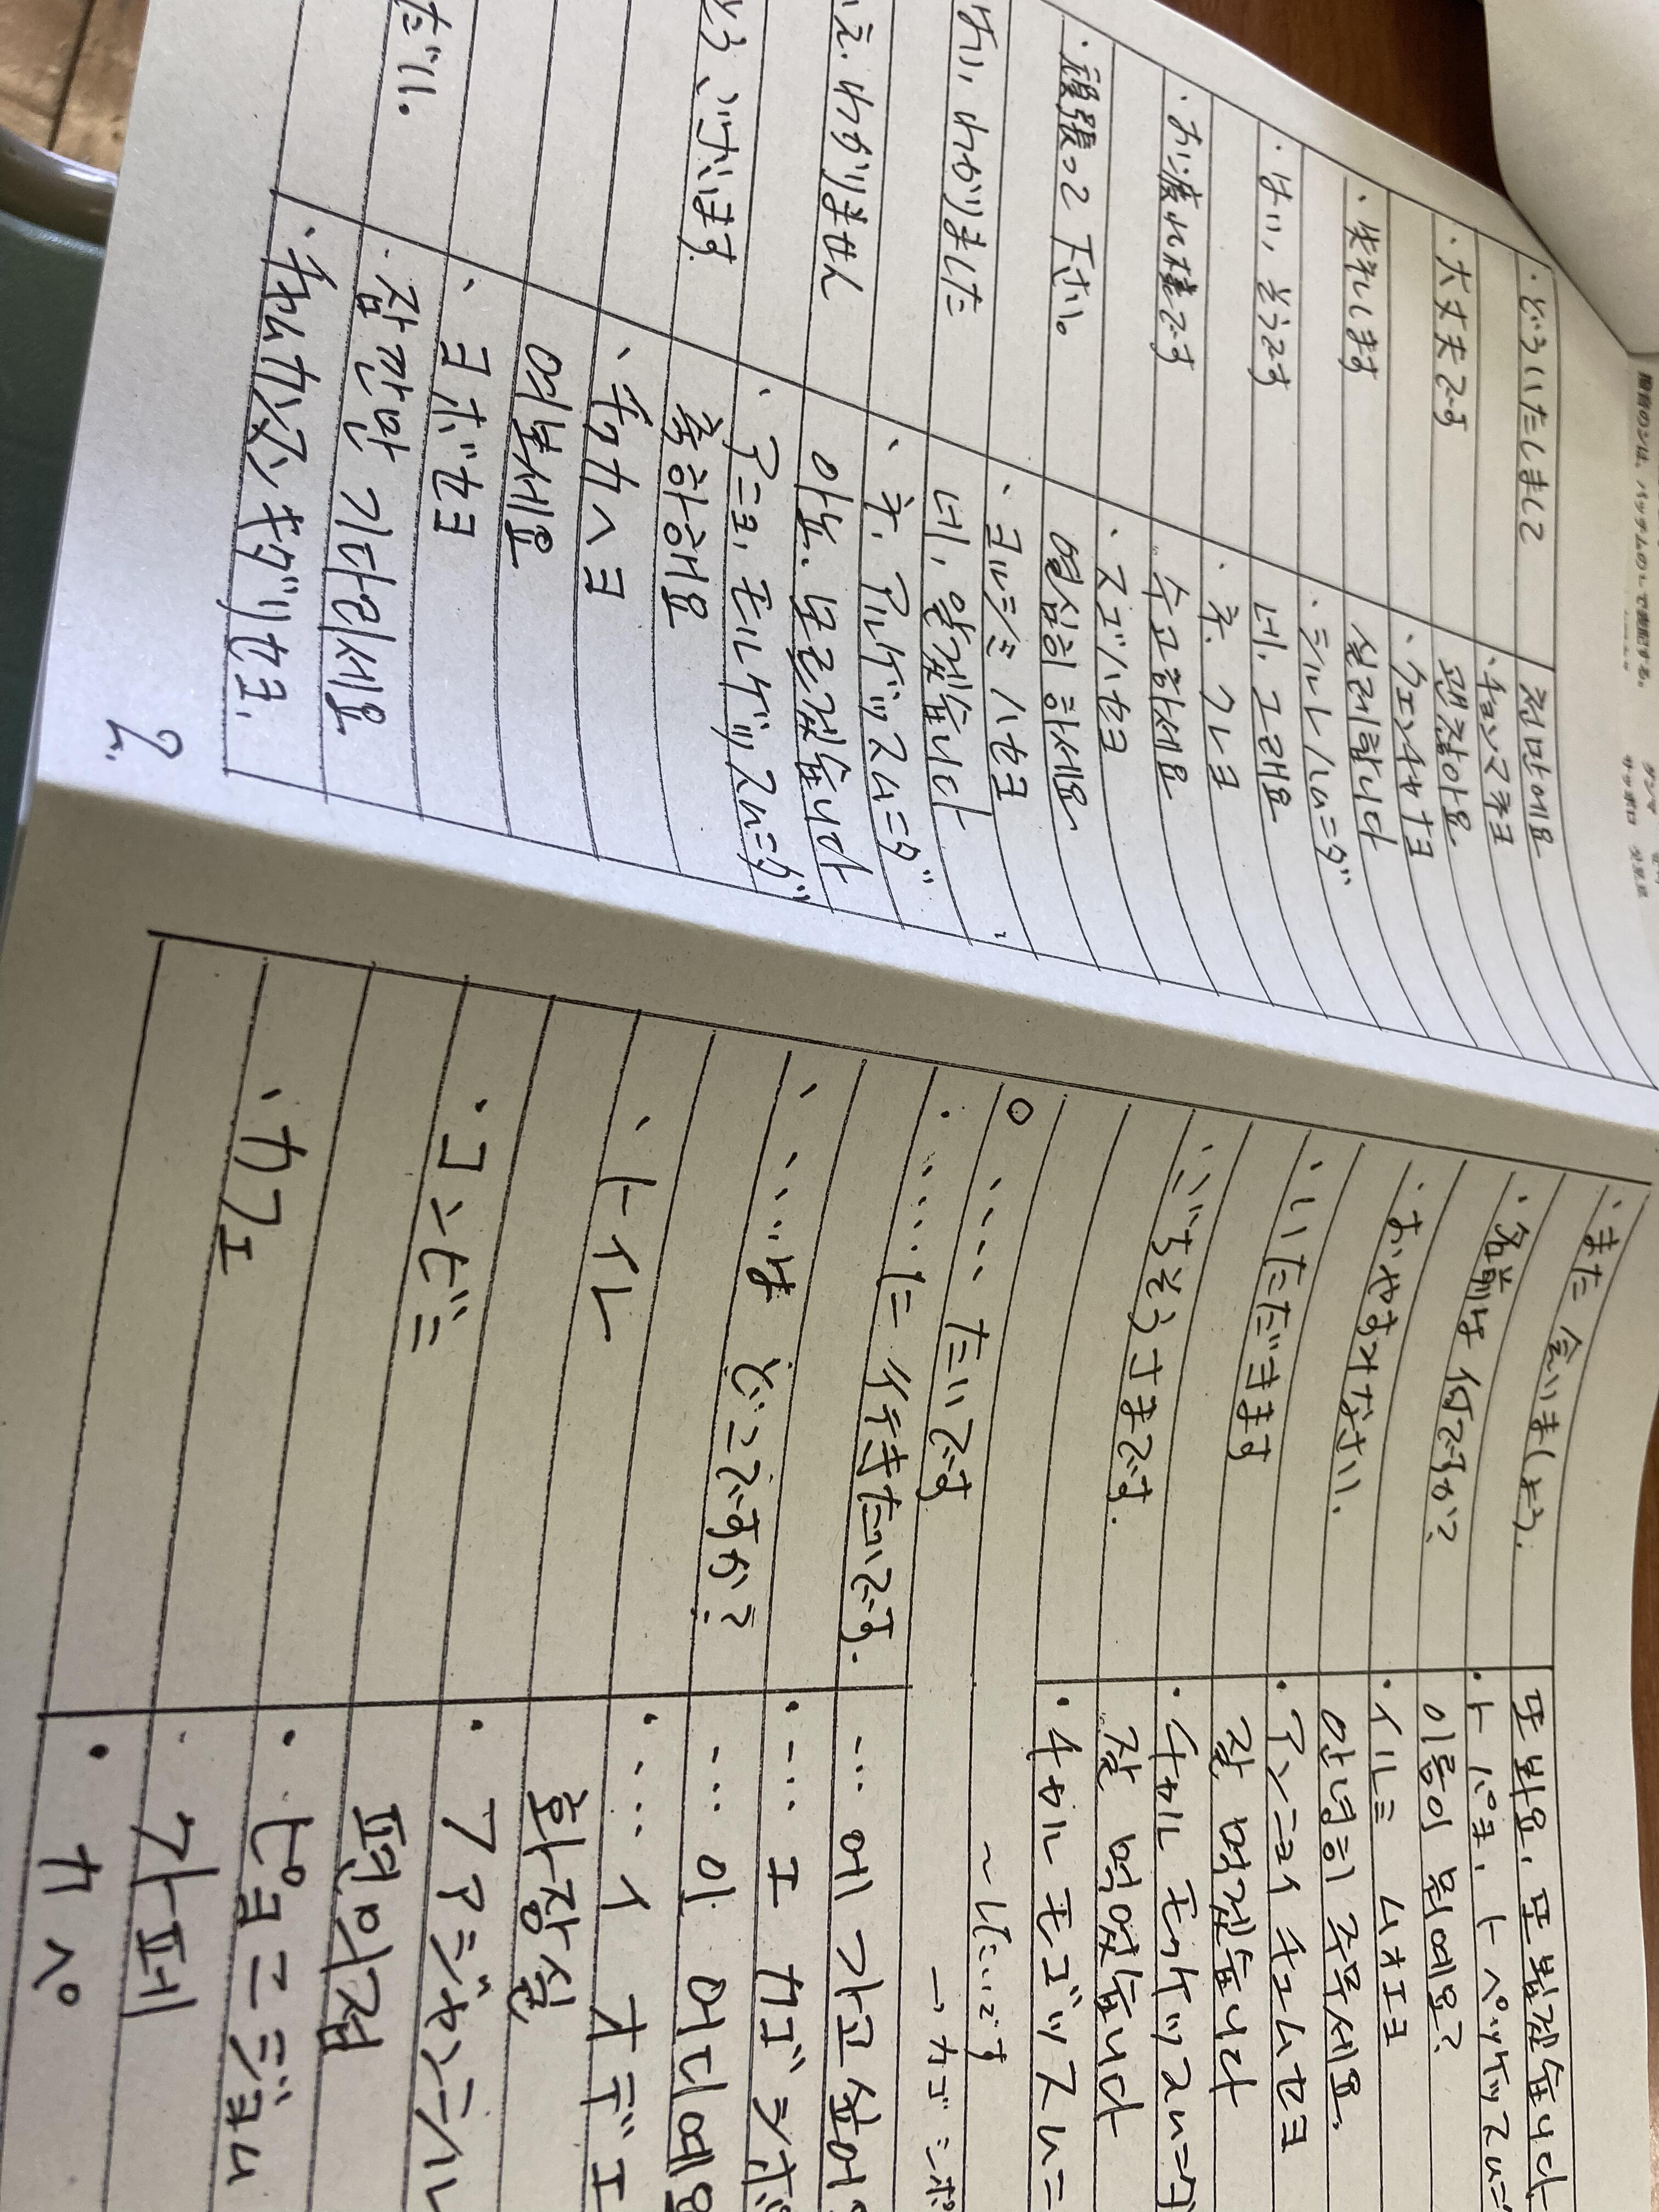 ・どういたしまして
천만에요
・チョンマネヨ
・大丈夫です
괜찮아요
・クェンチャナヨ
・失礼します
실례합니다
・シルレハムニダ
・はい, そうです
네, 그래요
・ネ. クレヨ
・お疲れ様です
수고하세요
・スゴハセヨ
・頑張って下さい。
열심히 하세요
・ヨルシミ ハセヨ
はい, わかりました
네, 알겠습니다
・ネ. アルゲッスムニダ
え. わかりません
아뇨. 모르겠습니다
・アニヨ. モルゲッスムニダ
とう ございます
축하해요
・チュカヘヨ
여보세요
・ヨボセヨ
ださい.
잠깐만 기다리세요
・チャムカンマン キダリセヨ.
2.
・また 会いましょう.
또 봐요, 또 뵙겠습니다
・ト パヨ, ト ペッケッスムニ
・名前は 何ですか?
이름이 뭐예요?
・イルミ ムオエヨ
・おやすみなさい.
안녕히 주무세요.
・アンニョンヒ チュムセヨ
・いただきます
잘 먹겠습니다
・チャル モッケッスムニダ
・ごちそうさまです.
잘 먹었습니다
・チャル モゴッスムニ
○ ・・・・ たいです
~したいです
→ カゴ シポ
・・・・・に 行きたいです.
・・・ 에 가고 싶어
・・・・ エ カゴ シポ
・・・・は どこですか?
・・・ 이 어디예요
・・・・ イ オディエ
・トイレ
화장실
・ファジャンシル
・コンビニ
편의점
・ピョニジョム
・カフェ
카페
・カペ